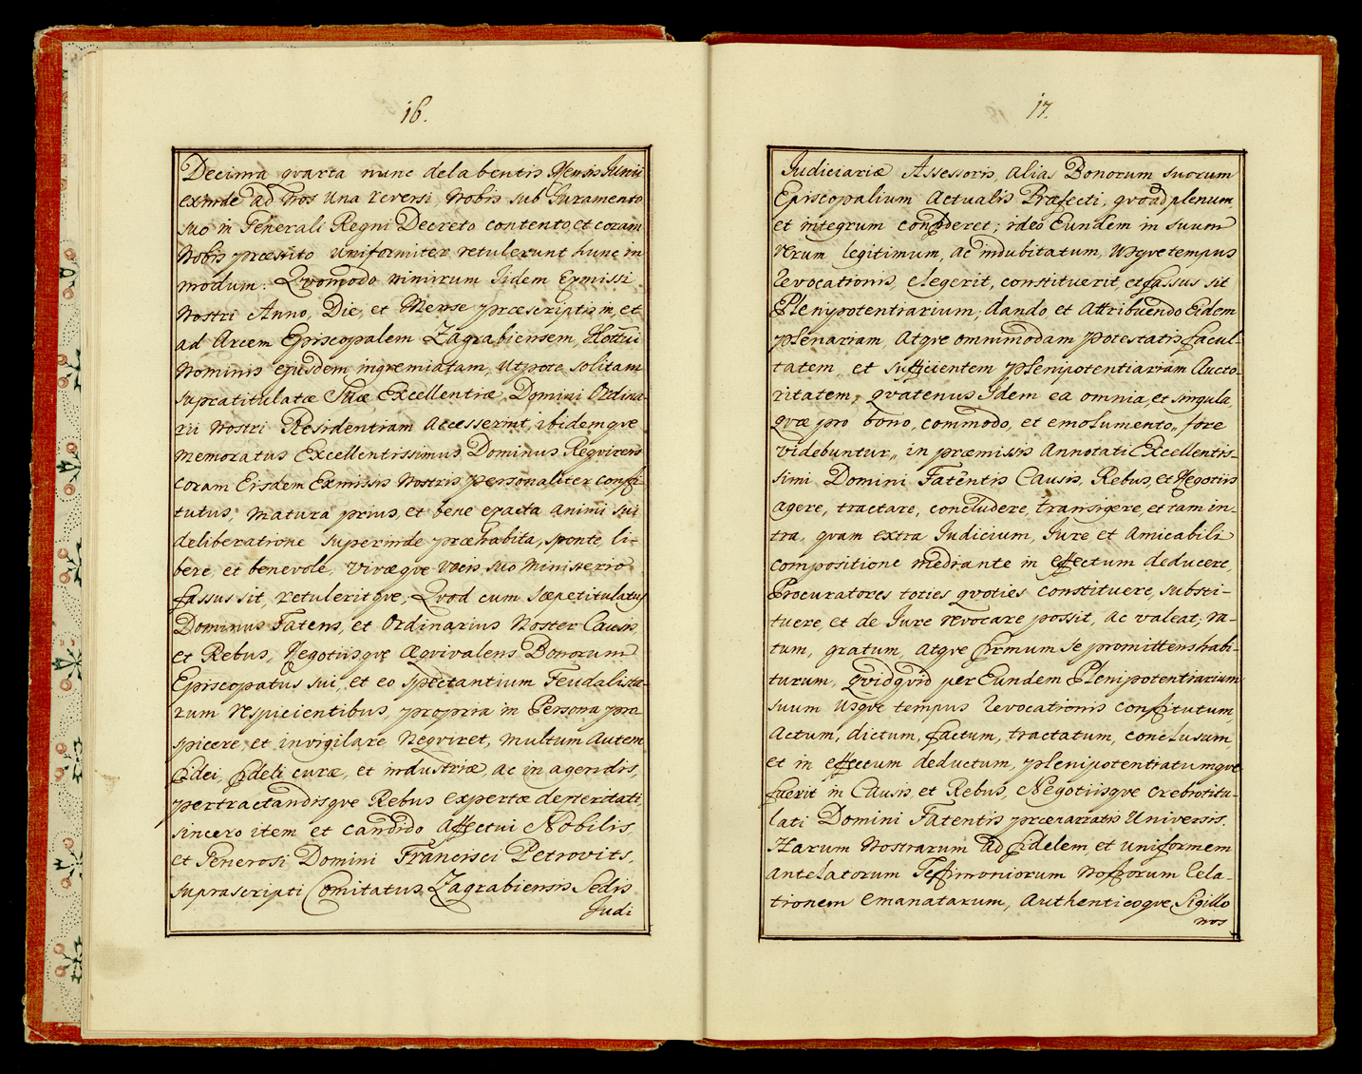 16.
Decima qvarta nunc delabentis Mensis Junii
exinde ad Nos una reversi, Nobis sub Juramento
suo in Generali Regni Decreto contento, et coram
Nobis præstito uniformiter retulerunt hunc in
modum: Qvomodo nimirum Iidem Exmissi
Nostri Anno, Die, et Mense præscriptis in, et
ad Arcem Episcopalem Zagrabiensem,
Nominis ejusdem ingremiatam, Utpote solitam
supratitulatæ Suæ Excellentiæ Domini Ordina-
rii Nostri Residentiam Accesserint, ibidemqve
memoratus Excellentissimus Dominus Reqvirens
coram Eisdem Exmissis Nostris personaliter consti-
tutus; matura prius, et bene exacta animi sui
deliberatione superinde præhabita, sponte, li-
bere, et benevole, vivæqve vocis suo ministerio
fassus sit, retuleritqve; Qvod cum sæpetitulatus
Dominus Fatens, et Ordinarius Noster Causis,
et Rebus, Negotiisqve Æqvivalens Bonorum
Episcopatus sui, et eo spectantium Feudalista-
rum respicientibus, propria in Persona pro-
spicere, et invigilare Neqviret, multum Autem
fidei, fideli curæ, et industriæ, ac in agendis,
pertractandisqve Rebus expertæ dexteritati,
sincero item et candido Affectui Nobilis
et Generosi Domini Francisci Petrovits,
suprascripti Comitatus Zagrabiensis Sedis
Judi
17.
Judiciariæ Assessoris, alias Bonorum suorum
Episcopalium Actualis Præfecti, qvoad plenum
et integrum confideret; ideo Eundem in suum
verum legitimum, ac indubitatum, Usqve tempus
revocationis, elegerit, constituerit, et fassus sit
Plenipotentiarium; dando et Attribuendo Eidem
plenariam, Atqve omnimodam potestatis facul-
tatem et sufficientem plenipotentiariam Aucto-
ritatem, qvatenus Idem ea omnia, et singula,
qvæ pro bono, commodo, et emolumento, fore
videbuntur, in præmissis Annotati Excellentis-
simi Domini Fatentis Causis, Rebus, et Negotiis
agere, tractare, concludere, transigere, et tam in-
tra, qvam extra Judicium, Jure et Amicabili
compositione mediante in effectum deducere,
Procuratores toties qvoties constituere, substi-
tuere, et de Jure revocare possit, ac valeat; ra-
tum, gratum, Atqve firmum se promittens habi-
turum, qvidqvid per Eundem Plenipotentiarium
suum Usqve tempus revocationis constitutum,
Actum, dictum, factum, tractatum, conclusum,
et in effectum deductum, plenipotentiatumqve
fuerit in Causis, et Rebus, Negotiisqve crebrotitu-
lati Domini Fatentis præcitatis Universis.
Harum Nostrarum ad fidelem, et uniformem
antelatorum Testimoniorum Nostrorum Rela-
tionem emanatarum, Authenticoqve Sigillo
nos